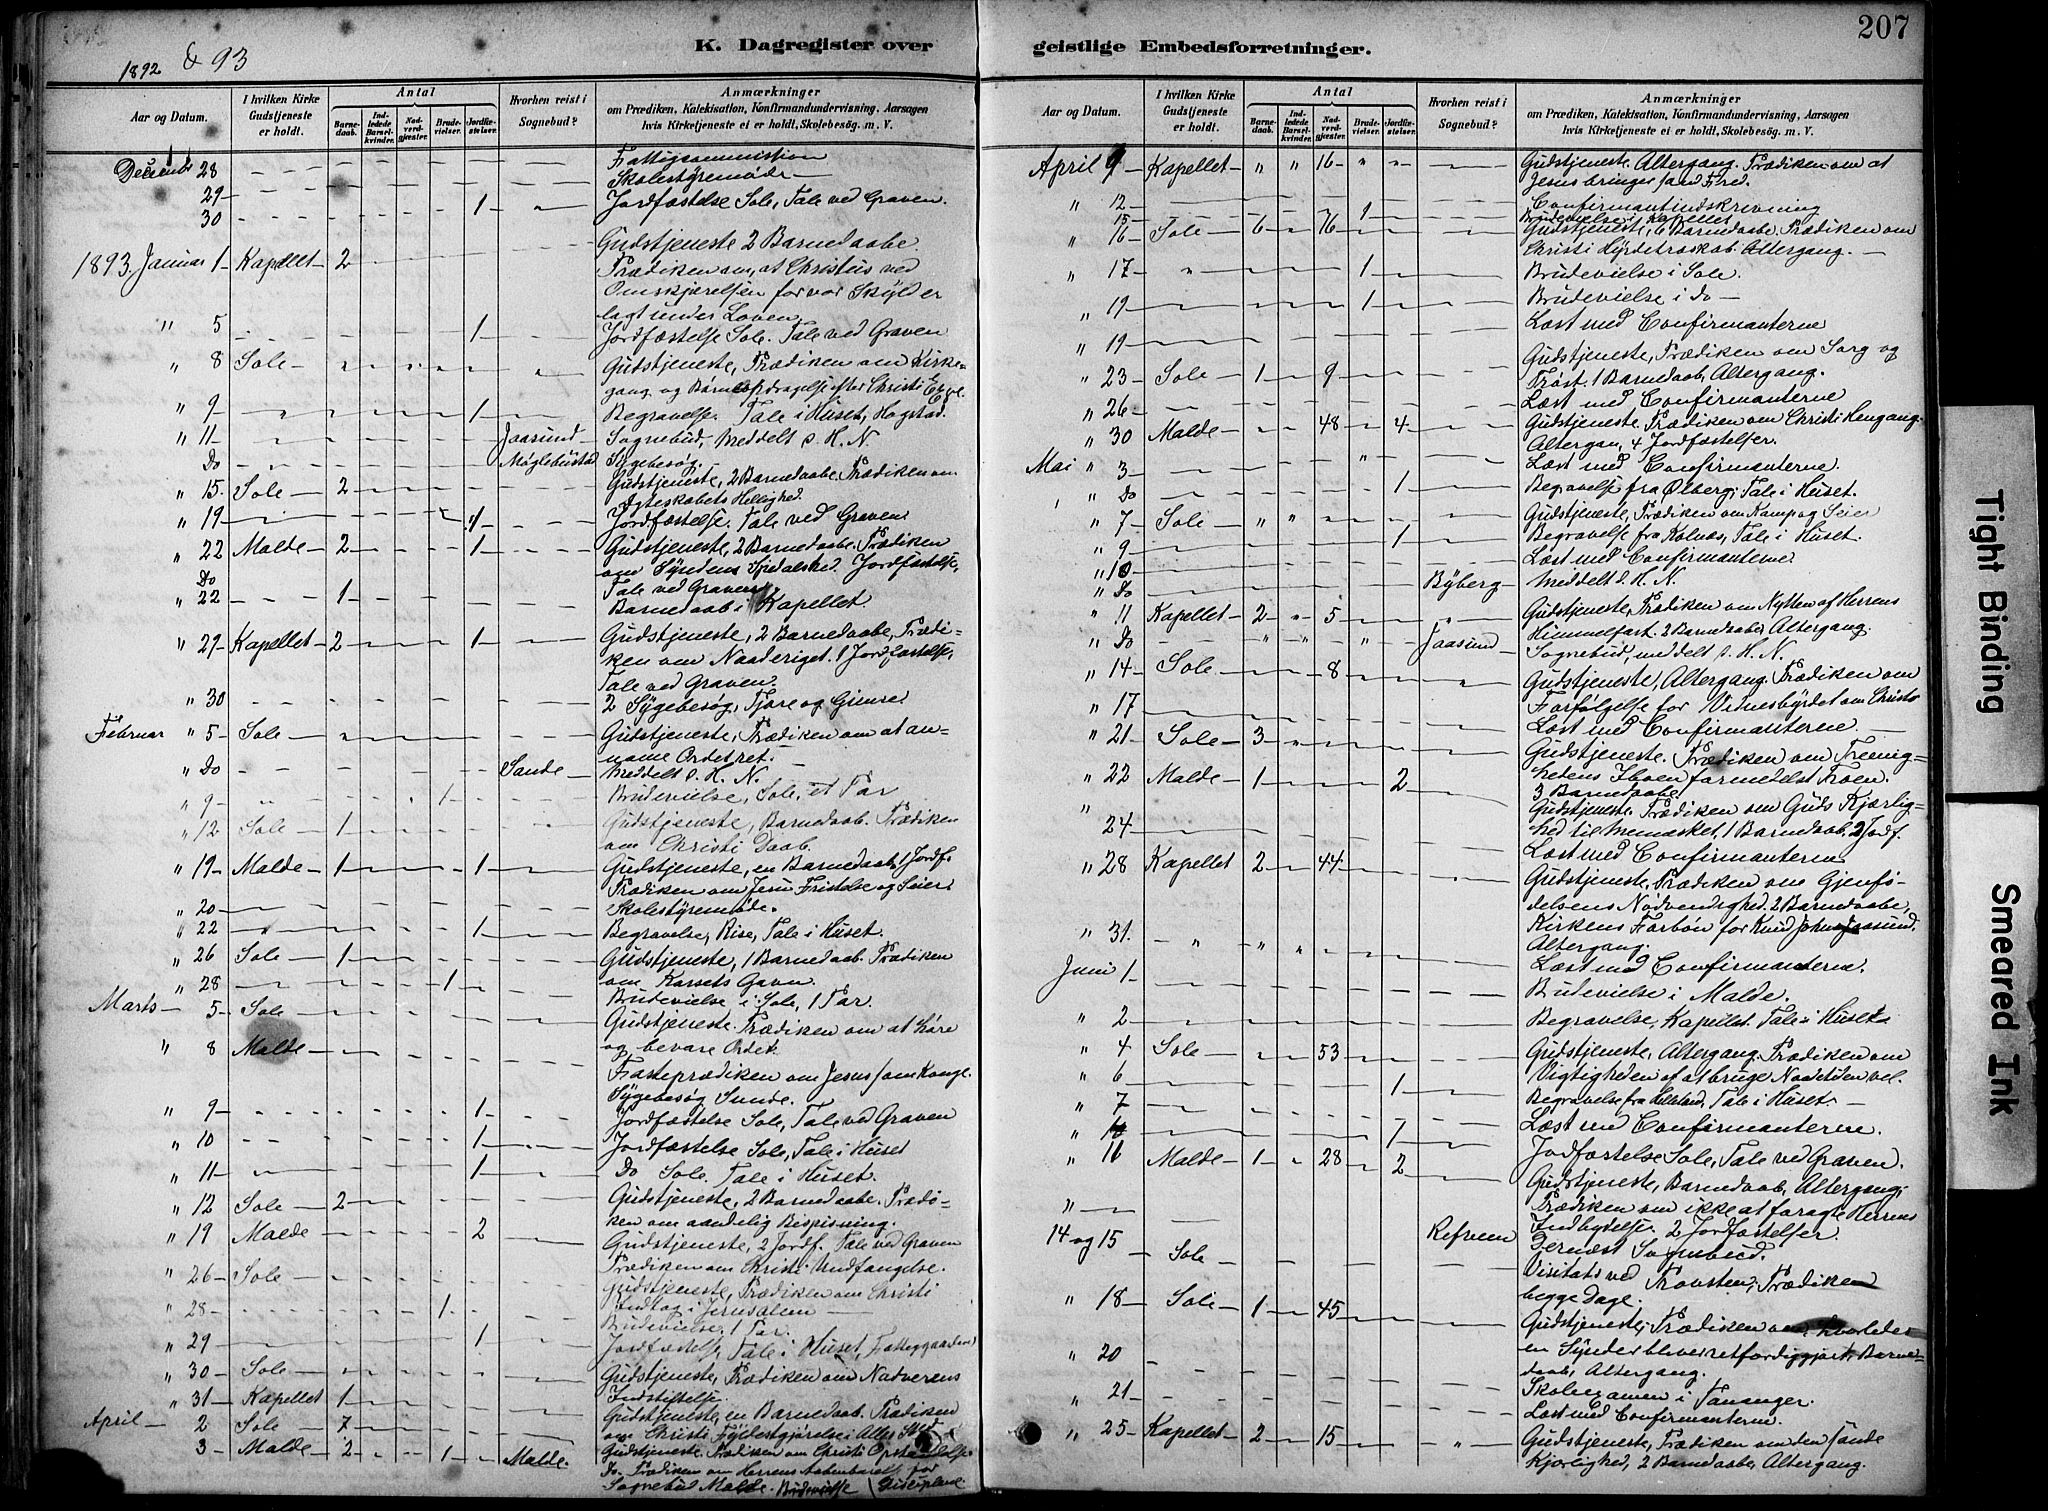 207
1892 & 93
K. Dagregister over
geistlige Embedsforretninger.
Aar og Datum.
I hvilken Kirke Gudstjeneste er holdt.
Antal
Barnedaab.
Indledede Barselkvinder.
Nadverdgjester.
Brudevielser.
Jordfæstelser.
Hvorhen reist i Sognebud?
Anmærkninger
om Prædiken, Katekisation, Konfirmandundervisning, Aarsagen
hvis Kirketjeneste ei er holdt, Skolebesøg. m. V.
Decemb 28 Fattigcommission
29 Skolestyremøde
30 1 Jordfæstelse Sole, Tale ved Graven.
1893. Januar 1 Kapellet 2 Gudstjeneste 2 Barnedaabe.
Prædiken om, at Christus ved
Omskjærelsen for vor Skyld er
lagt under Loven.
" 5 1 Jordfæstelse Sole. Tale ved Graven
" 8 Sole Gudstjeneste, Prædiken om Kirke-
gang og Børneopdragelse efter Christi
" 9 1 Begravelse. Tale i Huset, Hogstad.
" 11 Jaasund Sognebud, Meddelt d. H. N
Do Møglebustad Sygebesøg.
" 15 Sole 2 Gudstjeneste, 2 Barnedaabe. Prædiken om
Ægteskabets Hellighed.
" 19 1 Jordfæstelse. Tale ved Graven
" 22 Malde 2 1 Gudstjeneste, 2 Barnedaabe. Prædiken
om Syndens Spedalskhed. Jordfæstelse,
Tale ved Graven
Do
" 22 1 Barnedaab i Kapellet.
" 29 Kapellet 2 1 Gudstjeneste, 2 Barnedaabe, Prædi-
ken om Naaderiget. 1 Jordfæstelse,
Tale ved Graven.
" 30 2 Sygebesøg, Tjore og Gimre
Februar " 5 Sole Gudstjeneste, Prædiken om at an-
name Ordet ret.
" Do Sande Meddelt d. H. N.
" 9 1 Brudevielse, Sole, et Par
" 12 Sole 1 Gudstjeneste, Barnedaab. Prædiken
om Christi Daab.
" 19 Malde 1 1 Gudstjeneste, en Barnedaab, 1 Jordf.
Prædiken om Jesu Fristelse og Seier.
" 20 Skolestyremøde.
" 22 1 Begravelse, Rise, Tale i Huset.
" 26 Sole 1 Gudstjeneste, 1 Barnedaab. Prædiken
om Korsets Gavn.
" 28 1 Brudevielse i Sole, 1 Par.
Marts 5 Sole Gudstjeneste. Prædiken om at høre
og bevare Ordet.
" 8 Malde Fasteprædiken om Jesus som Konge.
Sygebesøg Sunde.
" 9 1 Jordfæstelse Sole, Tale ved Graven
" 10 1 Jordfæstelse Sole, Tale i Huset
" 11 1 Do Sole. Tale i Huset.
" 12 Sole 2 Gudstjeneste, 2 Barnedaabe. Prædi-
ken om aandelig Bispisning.
" 19 Malde 2 Gudstjeneste, 2 Jordf. Tale ved Graven
Prædiken om Christi Undfangelse.
" 26 Sole Gudstjeneste, Prædiken om Christi
Indtog i Jerusalem
" 28 1 Brudevielse. 1 Par.
" 29 1 Jordfæstelse, Tale i Huset, Fattiggaarden
" 30 Sole Gudstjeneste, Prædiken om Nadverens
Indstiftelse.
" 31 Kapellet 1 Gudstjeneste, en Barnedaab. Prædiken
om Christi Fyldestgjørelse i Alles Sted
April 2 Sole 7 Gudstjeneste. Prædiken om Christi Opstandelse.
3 Malde 2 1 Malde. Do. Prædiken om Herrens Aabenbarelse for
Sognebud Malde. Brudevielse (Disciplene
Aar og Datum.
I hvilken Kirke Gudstjeneste er holdt.
Antal
Barnedaab.
Indledede Barselkvinder.
Nadverdgjester.
Brudevielser.
Jordfæstelser.
Hvorhen reist i Sognebud?
Anmærkninger
om Prædiken, Katekisation, Konfirmandundervisning, Aarsagen
hvis Kirketjeneste ei er holdt, Skolebesøg. m. V.
April 9 Kapellet " " 16 " " Gudstjeneste. Altergang. Prædiken om at
Jesus bringer sand Fred.
" 12 Confirmantindskrivning
15 1 Brudevielse i Kapellet
" 16 Sole 6 76 Gudstjeneste, 6 Barnedaabe. Prædiken om
Christi Hyrdetroskab. Altergang.
" 17 " 1 Brudevielse i Sole.
" 19 1 Brudevielse i Do
" 19 Læst med Confirmanterne
" 23 Sole 1 9 Gudstjeneste, Prædiken om Sorg og
Trøst. 1 Barnedaab, Altergang.
" 26 Læst med Confirmanterne
" 30 Malde 48 4 Gudstjeneste. Prædiken om Christi Hengang.
Altergan, 4 Jordfæstelser.
Mai " 3 Læst med Confirmanterne.
" Do 1 Begravelse fra Ølberg. Tale i Huset.
" 7 Sole Gudstjeneste, Prædiken om Kamp og Seier
" 9 1 Begravelse fra Kolnes, Tale i Huset.
" 10 Læst med Confirmanterne
" Do Byberg Meddelt d. H. N.
" 11 Kapellet 2 5 Gudstjeneste, Prædiken om Nytten af Herrens
Himmelfart. 2 Barnedaabe, Altergang.
" Do Jaasund Sognebud, meddelt d. H. N.
" 14 Sole 8 Gudstjeneste, Altergang. Prædiken om
Forfølgelse for Vidnesbyrdet om Christo
" 17 Læst med Confirmanterne.
" 21 Sole 3 Gudstjeneste. Prædiken om Treenig-
hedens Iboen formedelst Troen.
3 Barnedaabe.
" 22 Malde 1 2 Gudstjeneste. Prædiken om Guds Kjærlig-
hed til Mennesket, 1 Barnedaab, 2 Jordf.
" 24 Læst med Confirmanterne
" 28 Kapellet 2 44 Gudstjeneste, Prædiken om Gjenfø-
delsens Nødvendighed. 2 Barnedaabe,
Kirkens Forbøn for Knud Johns Jaasund.
Altergang.
" 31. Læst med Confirmanterne.
Juni 1 Brudevielse i Malde.
" 2 Begravelse, Kapellet. Tale i Huset
" 4 Sole 53 Gudstjeneste, Altergang. Prædiken om
Vigtigheden af at bruge Naadetiden vel.
" 6 1 Begravelse fra Tale i Huset.
" 7 Læst med Confirmanterne.
" 10 1 Jordfæstelse Sole, Tale ved Graven.
" 11 Malde 1 28 2 Gudstjeneste, Barnedaab, Altergang,
Prædiken om ikke at foragte Herrens
Indbydelse. 2 Jordfæstelser.
" Refheim Dernæst Sognebud.
14 og 15 Sole Visitats ved Provsten, Prædiken
begge Dage.
" 18 Sole 1 45 Gudstjeneste, Prædiken om, hvorledes
en Synder bliver retfærdiggjort, Barne-
daab, Altergang.
" 20 Skoleexamen i Tananger.
" 21 Læst med Confirmanterne.
" 25 Kapellet 2 15 Gudstjeneste, Prædiken om den sande
Kjærlighed, 2 Barnedaabe, Altergang.
Tight Binding
Smeared Ink